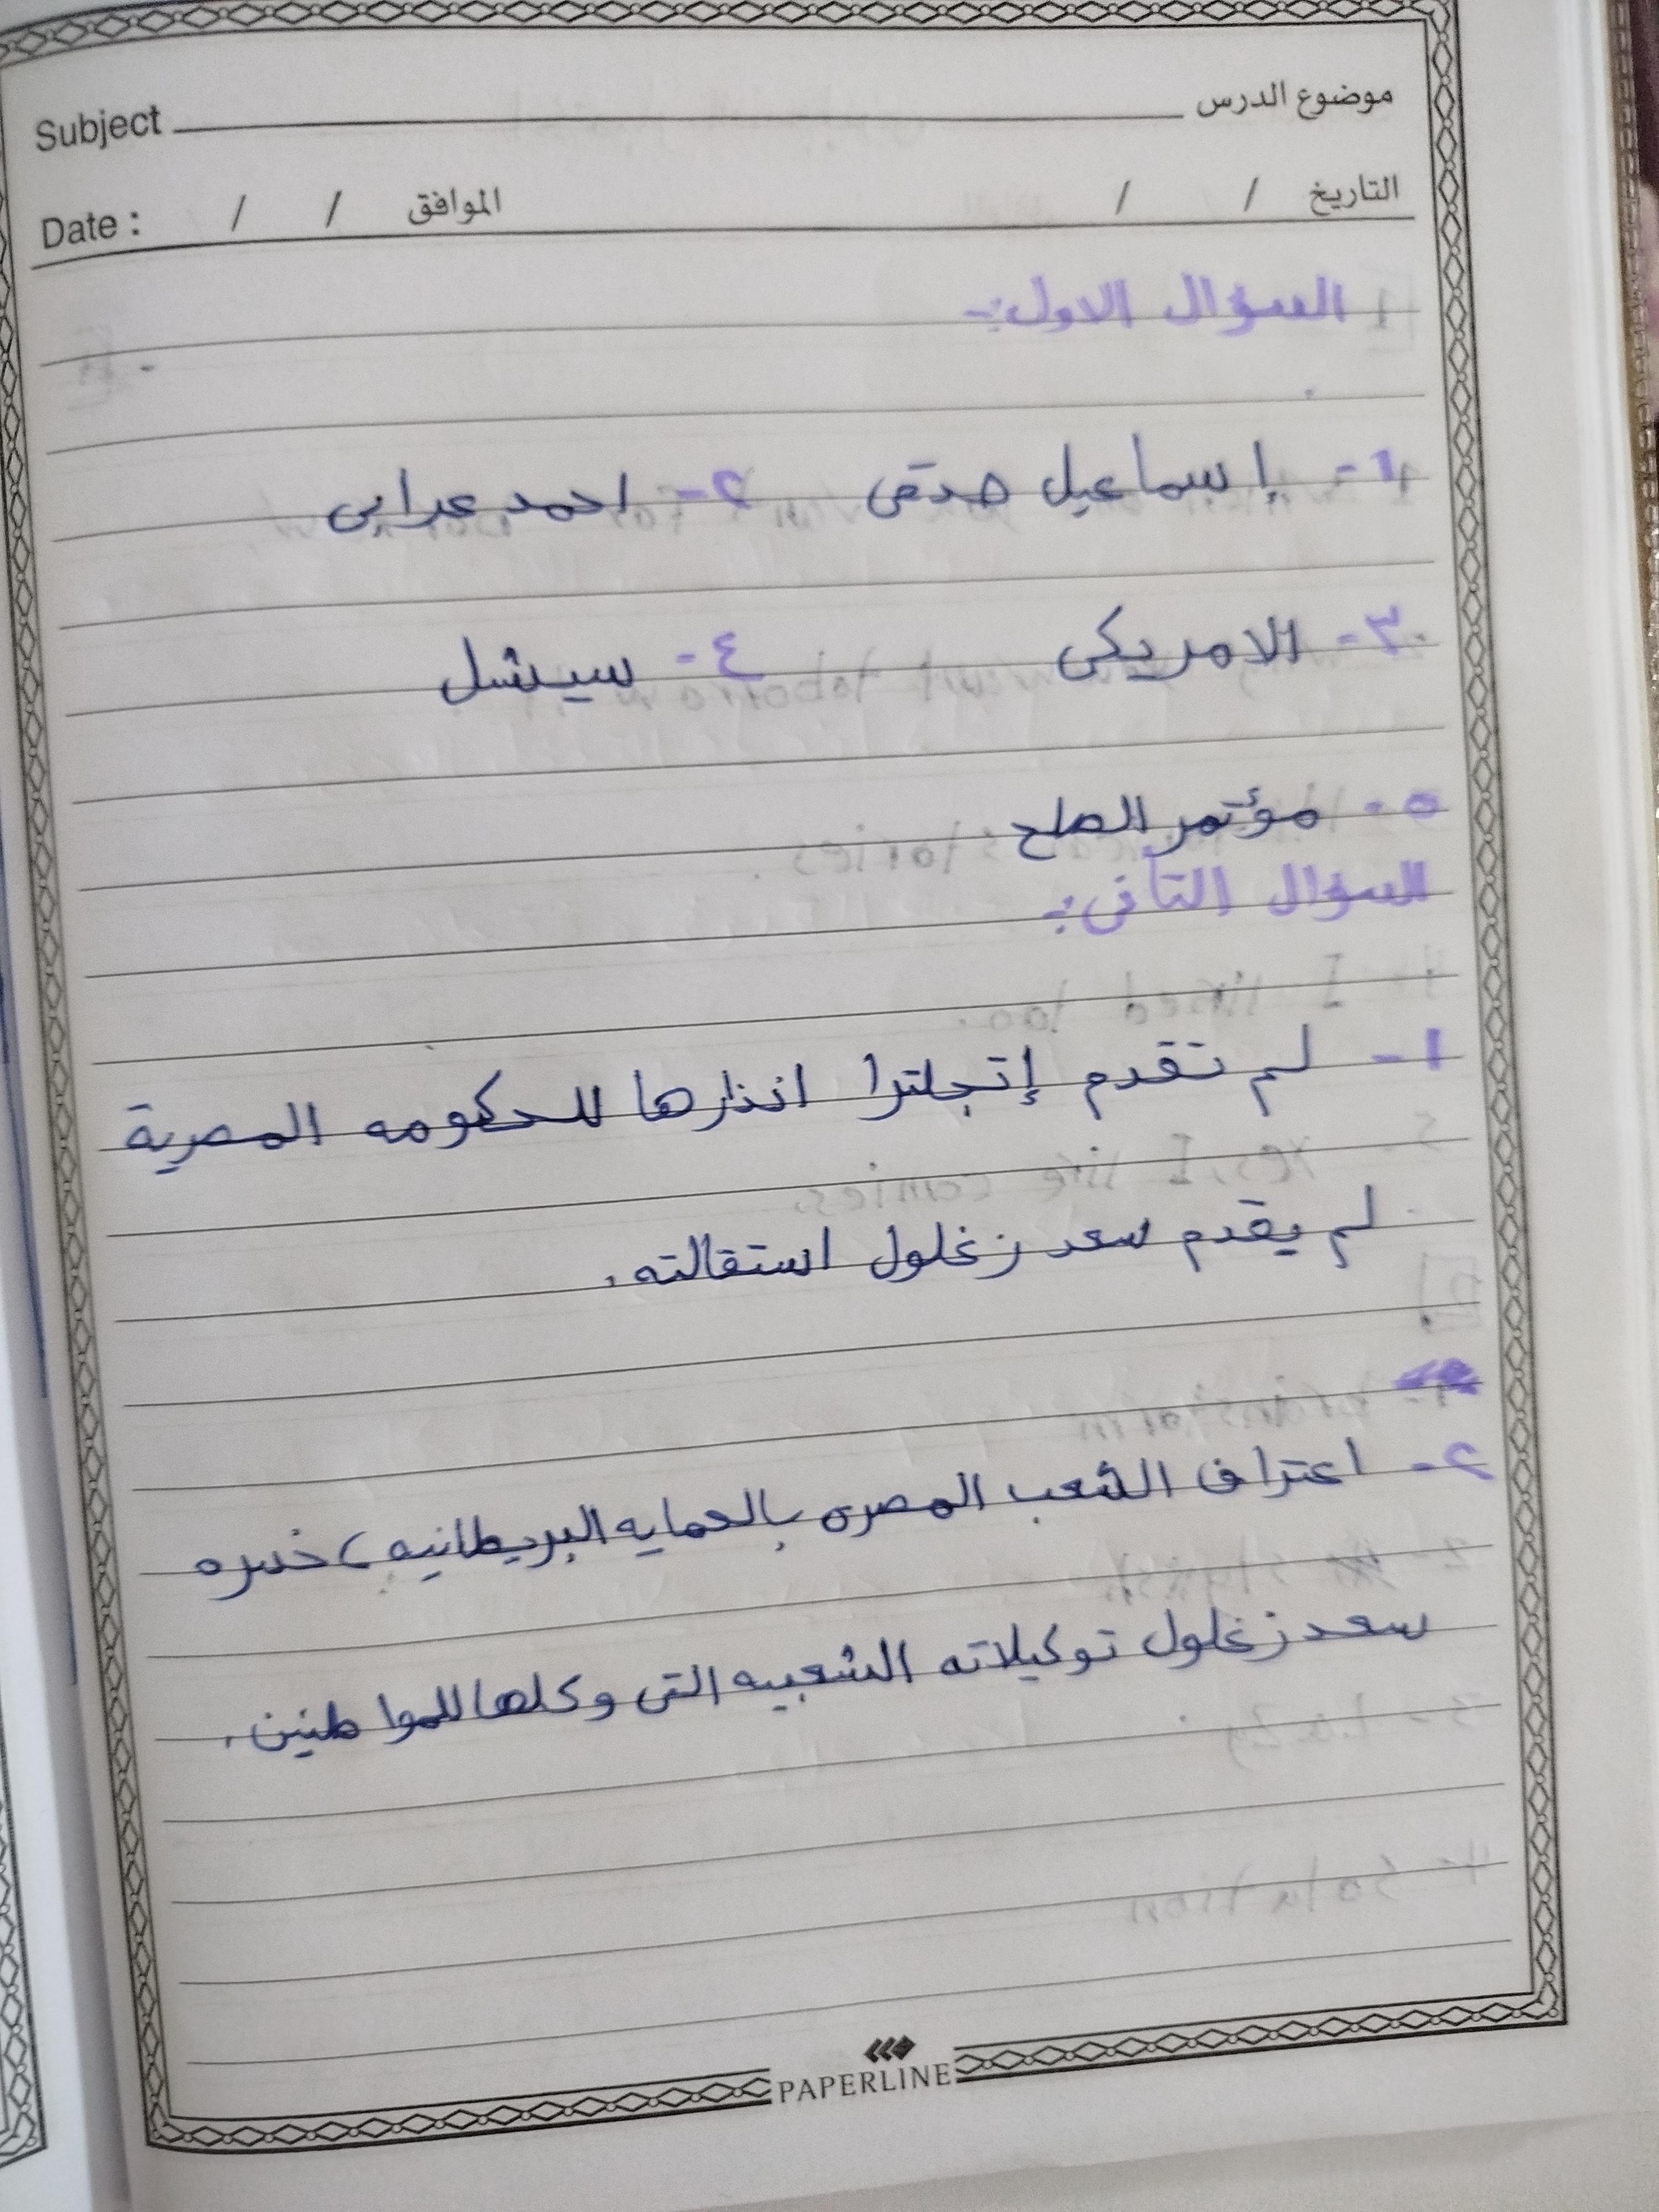 Subject موضوع الدرس
Date : / / الموافق / / التاريخ
1 السؤال الاول:-
1- إسماعيل صدقى ٢- احمد عرابى
٣- الامريكى ٤- سيشل
٥- مؤتمر الصلح
السؤال الثانى:-
١- لم تقدم إنجلترا انذارها للحكومه المصرية
لم يقدم سعد زغلول استقالته.
٢- اعتراف الشعب المصرى بالحمايه البريطانيه ، خسره
سعد زغلول توكيلاته الشعبيه التى وكلها للمواطنين.
PAPERLINE